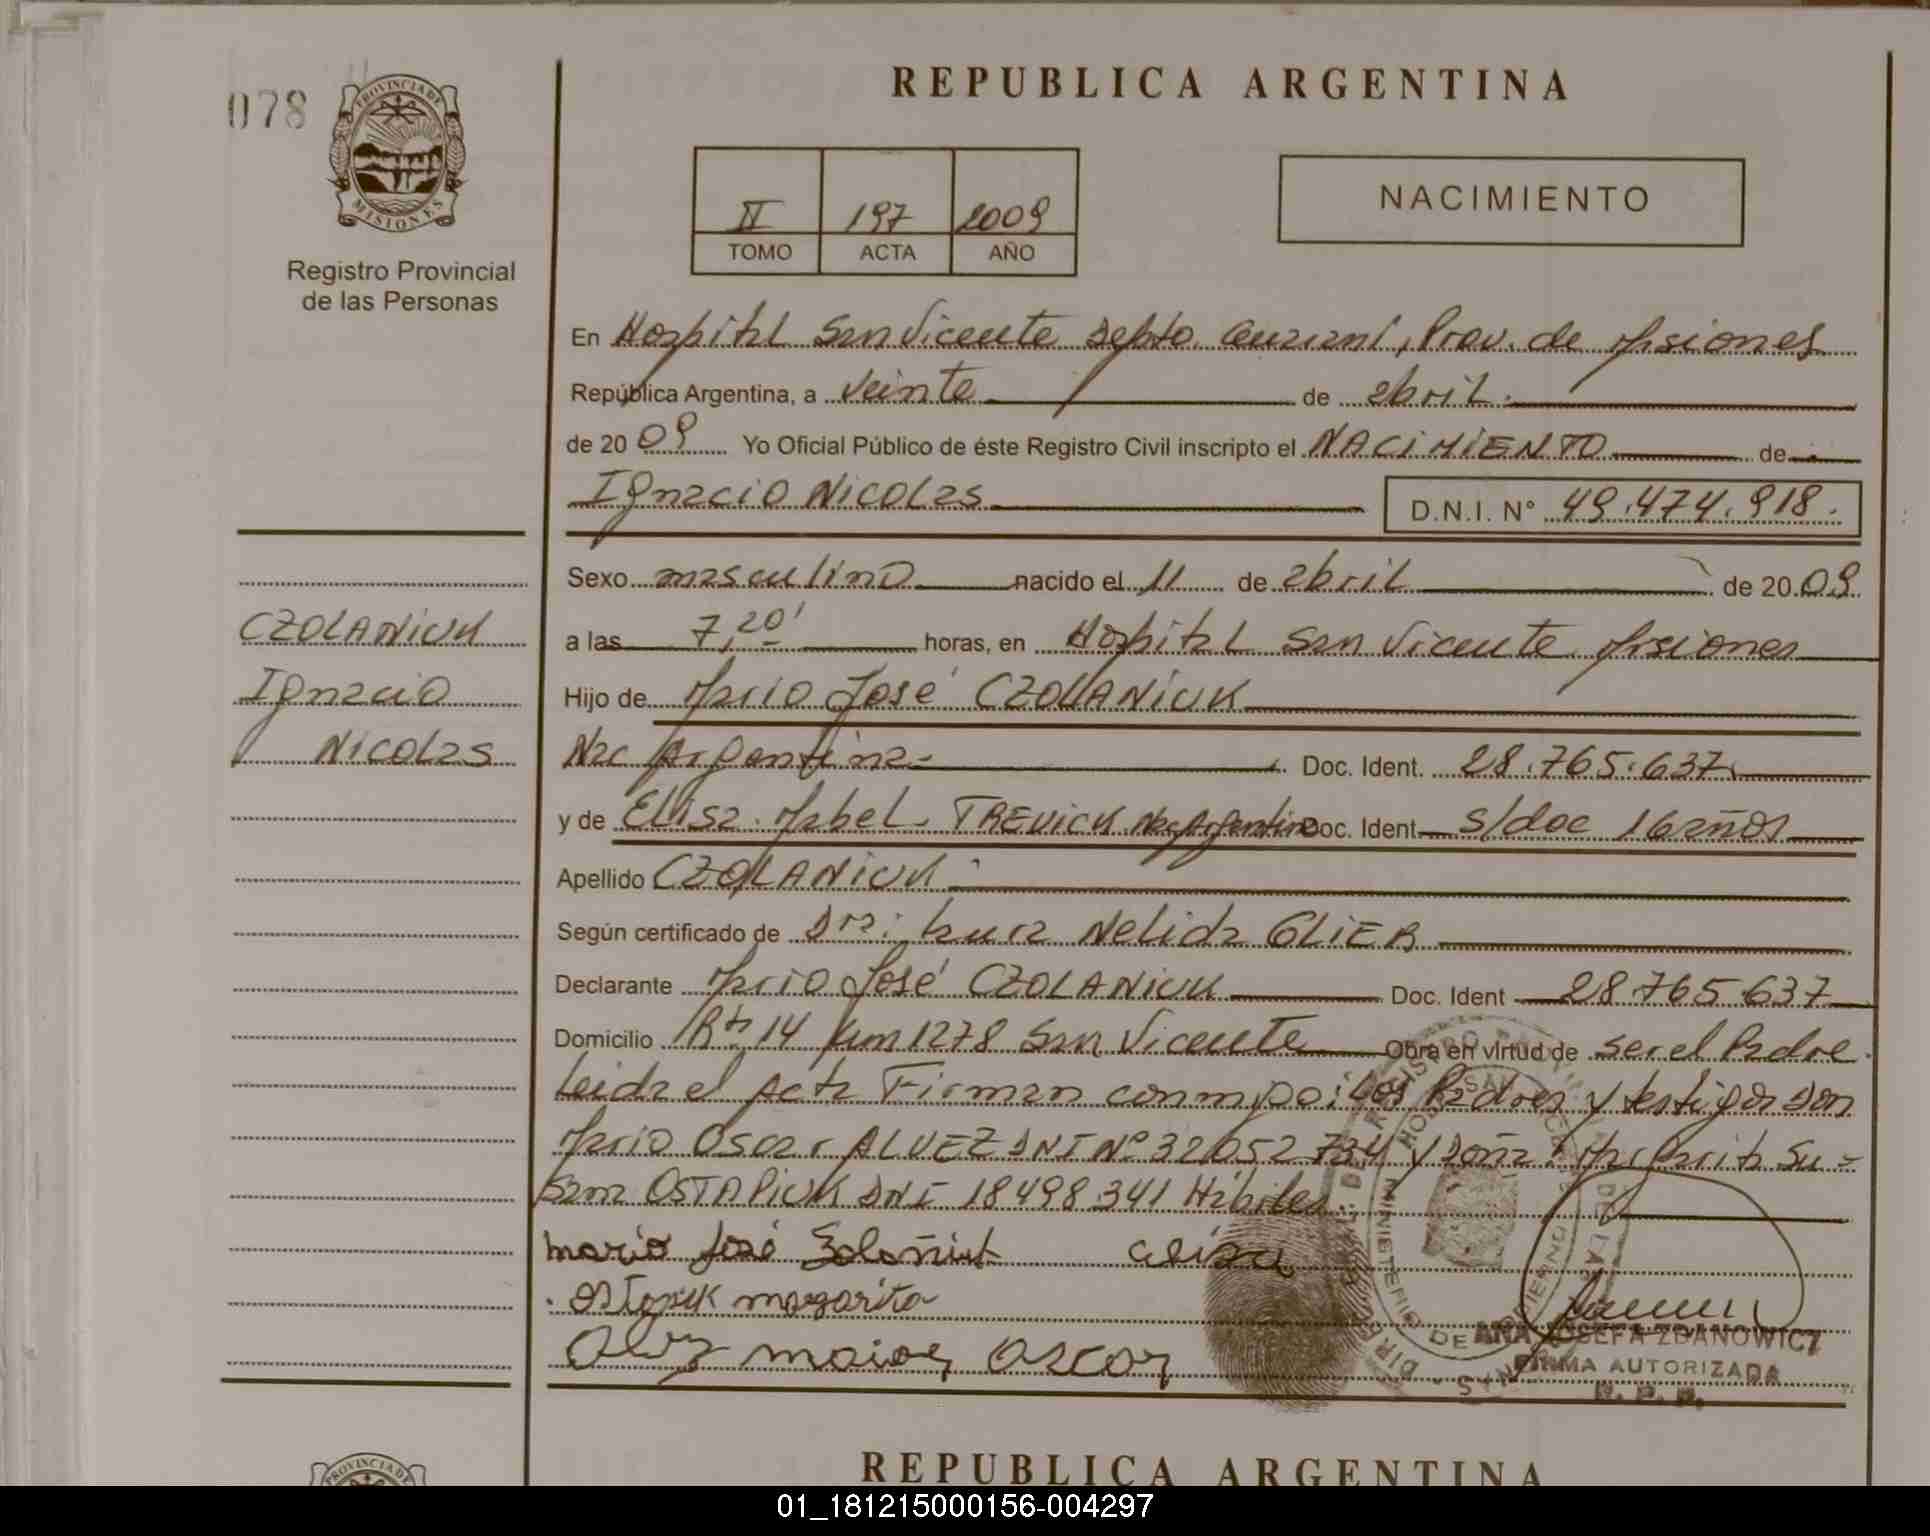 078
PROVINCIA DE
MISIONES
Registro Provincial
de las Personas
REPUBLICA ARGENTINA
II 197 2009
TOMO ACTA AÑO
NACIMIENTO
En Hospital San Vicente Depto. Guaraní, Prov. de Misiones
República Argentina, a veinte de abril.
de 20 09 Yo Oficial Público de éste Registro Civil inscripto el NACIMIENTO de
Ignacio Nicolas
D.N.I. N° 49.474.918.
Sexo masculino nacido el 11 de abril de 20 09
a las 7,20' horas, en Hospital San Vicente Misiones
Hijo de Mario José CZOLANIUK
Nac Argentina- Doc. Ident. 28.765.637
y de Elisa Mabel TREVICK Nac Argentina Doc. Ident. s/doc 16 años
Apellido CZOLANIUK
Según certificado de Dra: Laura Nelida GLIER
Declarante Mario José CZOLANIUK Doc. Ident 28765637
Domicilio Rta 14 Km 1278 San Vicente Obra en virtud de ser el Padre
Leida el Acta Firman conmigo: Los Padres y testigos Don
Mario Oscar ALVEZ DNI N° 32052734 y Doña: Margarita Su-
sana OSTAPIUK DNI 18498.341 Hábiles.
CZOLANIUK
Ignacio
Nicolas
mario José elisa
margarita
Oscar
MINISTERIO DE
ANA JOSEFA ZDANOWICZ
FIRMA AUTORIZADA
R. P. P.
PROVINCIA DE
REPUBLICA ARGENTINA
01_181215000156-004297